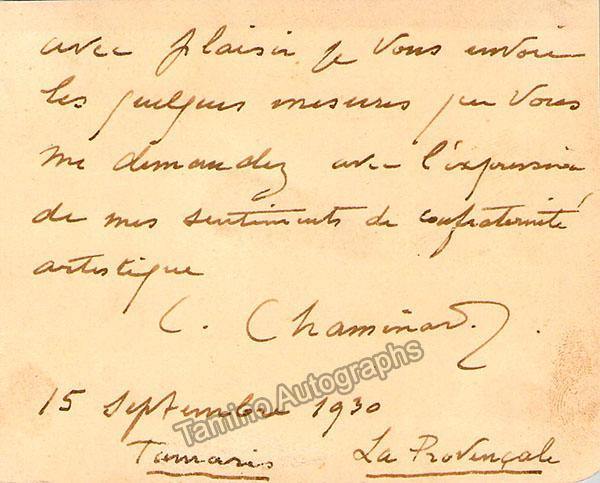 avec plaisir je vous envoie
les quelques mesures que vous
me demandez avec l'expression
de mes sentiments de confraternité
artistique
C. Chaminade.
15 Septembre 1930
Tamaris La Provençale
Tamino Autographs